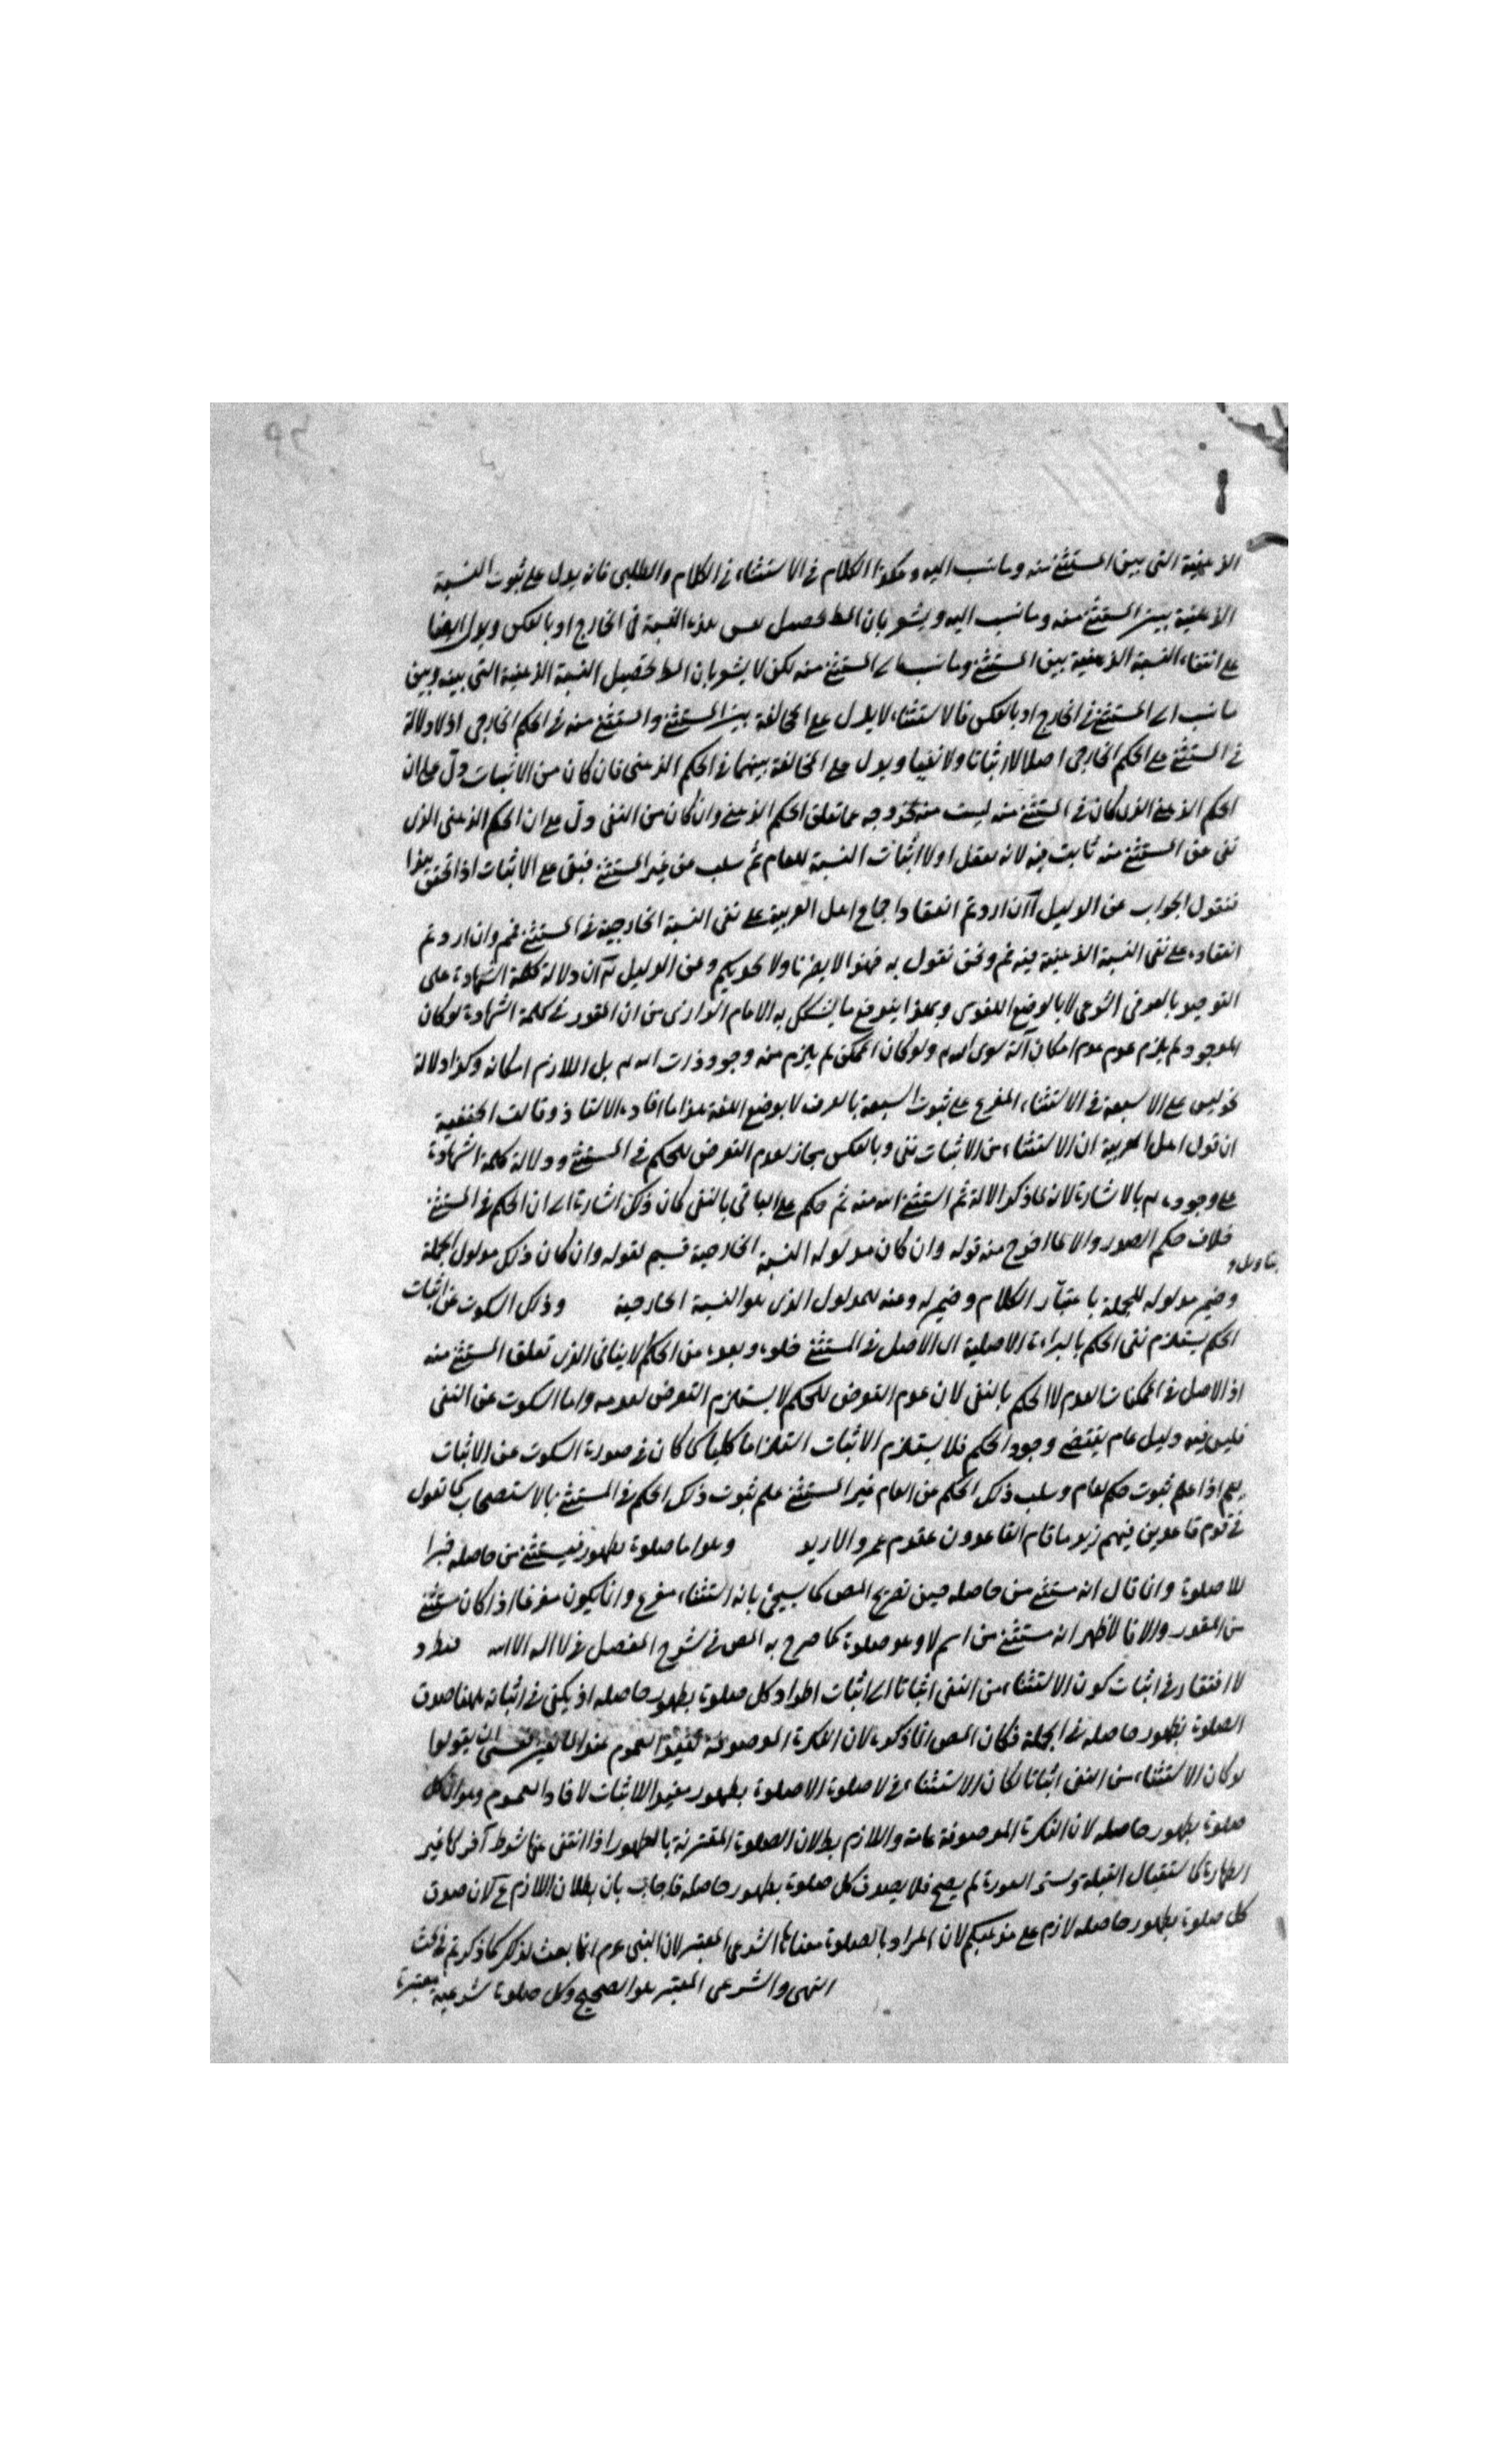 الذهنية التى بين المستثنى منه وما نسب اليه وهكذا الكلام فى الاستثناء فى الكلام والطلبى فانه يدل على ثبوت النسبة
الذهنية بين المستثنى منه وما نسب اليه ويشعر بان المط تحصيل هذه النسبة فى الخارج او بالعكس ويدل ايضا
على انتفاء النسبة الذهنية بين المستثنى وما نسب الى المستثنى منه لكن لا يشعر بان المط تحصيل النسبة الذهنية التى بينه وبين
ما نسب الى المستثنى فى الخارج او بالعكس فالاستثناء لا يدل على المخالفة بين المستثنى والمستثنى منه فى الحكم الخارجى اذ لا دلالة
فى المستثنى على الحكم الخارجى اصلا لا اثباتا ولا نفيا ويدل على المخالفة بينهما فى الحكم الذهنى فان كان من الاثبات دل على ان
الحكم الذهنى الذى كان فى المستثنى منه ليست منه لخروجه عما تعلق الحكم الذهنى وان كان من النفى دل على ان الحكم الذهنى الذى
نفى عن المستثنى منه ثابت فيه لانه تعقل اولا اثبات النسبة للعام ثم سلب عن غير المستثنى فبقى على الاثبات اذا تحقق هذا
فنقول الجواب عن الدليل آ ان اردتم انعقاد اجماع اهل العربية على نفى النسبة الخارجية فى المستثنى فمم وان اردتم
انعقاده على نفى النسبة الذهنية فيه فم ونحن نقول به فهذا لا يضرنا ولا يجديكم وعن الدليل ان دلالة كلمة الشهادة على
التوحيد بالعرف الشرعى لا بالوضع اللغوى وبهذا يندفع ما يشكل به الامام الرازى من ان المقدر فى كلمة الشهادة لو كان
الموجود لم يلزم عدم امكان آلة سوى الله ولو كان الممكن لم يلزم منه وجود ذات الله بل اللازم امكانه وكذا دلالة
نحو ليس على الا سبعة فى الاستثناء المفرغ على ثبوت السبعة بالعرف لا بوضع اللغة هذا ما افاده الاستاذ وقالت الحنفية
ان قول اهل العربية ان الاستثناء من الاثبات نفى وبالعكس مجاز لعدم التعرض للحكم فى المستثنى ودلالة كلمة الشهادة
على وجوده بالاشارة لانه لما ذكر الالة ثم استثنى الله منه ثم حكم على الباقى بالنفى كان ذلك اشارة الى ان الحكم فى المستثنى
خلاف حكم الصدر والا لما اخرج منه قوله وان كان مدلوله النسبة الخارجية قسيم لقوله وان كان ذلك مدلول الجملة
وضمير مدلوله للجملة باعتبار الكلام وضمير له وعنه للمدلول الذى هو النسبة الخارجية وذلك السكوت عن اثبات
الحكم يستلزم نفى الحكم بالبراءة الاصلية اى الاصل فى المستثنى خلوه وبعده عن الحكم الايقاعى الذى تعلق المستثنى منه
اذ الاصل فى الممكنات العدم لا الحكم بالنفى لان عدم التعرض للحكم لا يستلزم التعرض لعدمه واما السكوت عن النفى
فليس فيه دليل عام يقتضى وجود الحكم فلا يستلزم الاثبات استلزاما كليا كما كان فى صورة السكوت عن الاثبات
نعم اذا علم ثبوت حكم لعام وسلب ذلك الحكم عن العام غير المستثنى علم ثبوت ذلك الحكم فى المستثنى بالاستصحاب كما تقول
فى قوم قاعدين فيهم زيد ما قام القاعدون الا زيد وهو اما صلوة بطهور فيستثنى من حاصله خبرا
للا صلوة وانما قال انه مستثنى من حاصله حين تصريح المص كما سيجئ بانه استثناء مفرغ وانما يكون مفرغا اذا كان مستثنى
من المقدر والا فالاظهر انه مستثنى من اسم لا وهو صلوة كما صرح به المص فى شرح المفصل فى لا اله الا الله فنطرد
لا افتقار فى اثبات كون الاستثناء من النفى اثباتا الى اثبات اطراد كل صلوة بطهور حاصله اذ يكفى فى اثباته ههنا صدق
الصلوة بطهور حاصله فى الجملة فكان المص انما ذكره لان النكرة الموصوفة تفيد العموم عند الحنفية ان يقولوا
لو كان الاستثناء من النفى اثباتا لكان الاستثناء فى لا صلوة الا صلوة بطهور مفيدا للاثبات لافاد العموم وهو ان كل
صلوة بطهور حاصله لان النكرة الموصوفة عامة واللازم بط لان الصلوة المقترنة بالطهور اذا انتفى عنها شرط آخر كما غير
الطهارة كاستقبال القبلة وستر العورة لم يصح فلا يصدق كل صلوة بطهور حاصله فاجاب بان بطلان اللازم م لان صدق
كل صلوة بطهور حاصله لازم على مذهبكم لان المراد بالصلوة معناها الشرعى المعتبر لان النبى عم انما بعث لذلك كما ذكرتم فى بحث
النهى والشرعى المعتبر هو الصحيح وكل صلوة شرعية معتبرة